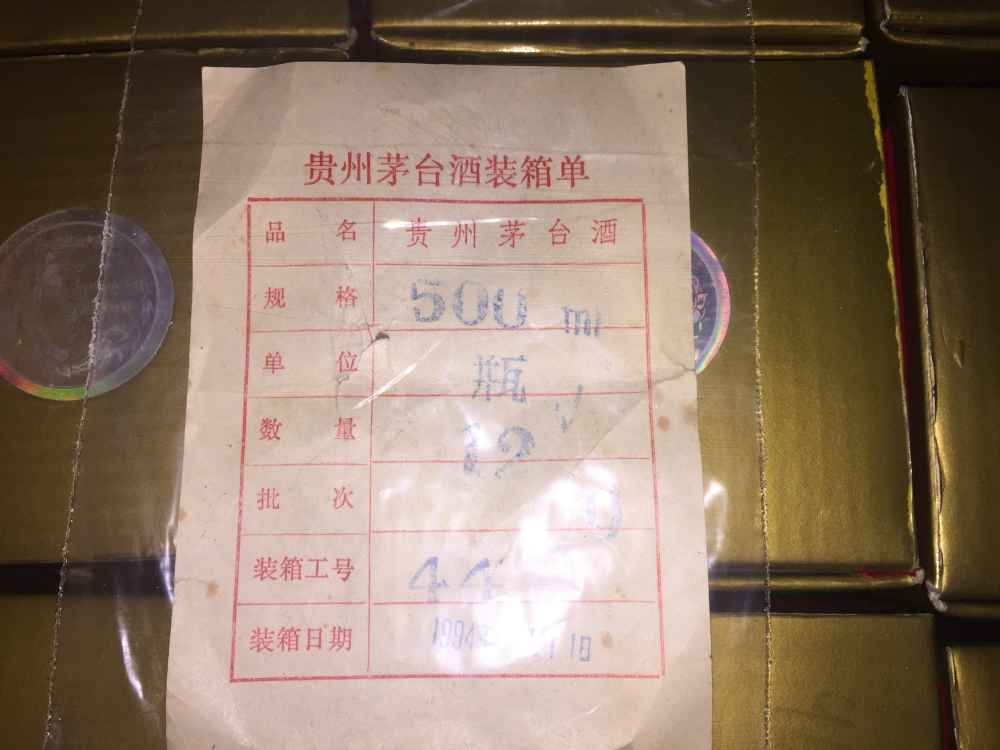 贵州茅台酒装箱单
品 名 贵州茅台酒
规 格 500 ml
单 位 瓶
数 量 12
批 次
装箱工号 44
装箱日期 1994年